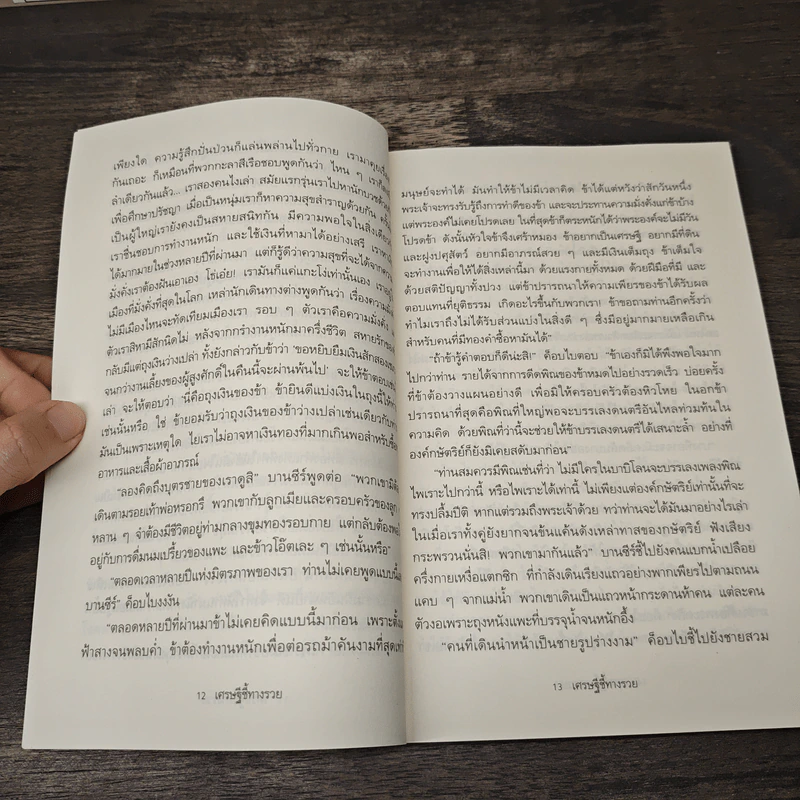 เพียงใด ความรู้สึกปั่นป่วนก็แล่นพล่านไปทั่วกาย เรามาคุย
กันเถอะ ก็เหมือนที่พวกกะลาสีเรือชอบพูดกันว่า ไหน ๆ เราก็
ลำเดียวกันแล้ว... เราสองคนไงเล่า สมัยแรกรุ่นเราไปหานักบวชด้วย
เพื่อศึกษาปรัชญา เมื่อเป็นหนุ่มเราก็หาความสุขสำราญด้วยกัน
เป็นผู้ใหญ่เรายังคงเป็นสหายสนิทกัน มีความพอใจในสิ่งเดียว
เราชื่นชอบการทำงานหนัก และใช้เงินที่หามาได้อย่างเสรี เราหา
ได้มากมายในช่วงหลายปีที่ผ่านมา แต่ก็รู้ดีว่าความสุขที่จะได้จากความ
มั่งคั่งเราต้องฝันเอาเอง โธ่เอ๋ย! เรามันก็แค่แกะโง่เท่านั้นเอง เราอยู่ใน
เมืองที่มั่งคั่งที่สุดในโลก เหล่านักเดินทางต่างพูดกันว่า เรื่องความมั่งคั่ง
ไม่มีเมืองไหนจะทัดเทียมเมืองเรา รอบ ๆ ตัวเราคือความมั่งคั่ง แต่
ตัวเราสิหามีสักนิดไม่ หลังจากกรำงานหนักมาครึ่งชีวิต สหายรักของ
กลับมีแต่ถุงเงินว่างเปล่า ทั้งยังกล่าวกับข้าว่า ‘ขอหยิบยืมเงินสักสอง
จนกว่างานเลี้ยงของผู้สูงศักดิ์ในคืนนี้จะผ่านพ้นไป’ จะให้ข้าตอบ
เล่า จะให้ตอบว่า ‘นี่คือถุงเงินของข้า ข้ายินดีแบ่งเงินในถุงนี้ให้
เช่นนั้นหรือ ใช่ ข้ายอมรับว่าถุงเงินของข้าว่างเปล่าเช่นเดียวกับ
มันเป็นเพราะเหตุใด ไยเราไม่อาจหาเงินทองที่มากเกินพอสำหรับซื้อ
อาหารและเสื้อผ้าอาภรณ์
“ลองคิดถึงบุตรชายของเราดูสิ” บานซีร์พูดต่อ “พวกเขามิได้
เดินตามรอยเท้าพ่อหรอกรึ พวกเขากับลูกเมียและครอบครัวของลูก
หลาน ๆ จำต้องมีชีวิตอยู่ท่ามกลางขุมทองรอบกาย แต่กลับต้องพอใจ
อยู่กับการดื่มนมเปรี้ยวของแพะ และข้าวโอ๊ตเละ ๆ เช่นนั้นหรือ”
“ตลอดเวลาหลายปีแห่งมิตรภาพของเรา ท่านไม่เคยพูดแบบนี้เลย
บานซีร์” ค็อบไบงงงัน
“ตลอดหลายปีที่ผ่านมาข้าไม่เคยคิดแบบนี้มาก่อน เพราะตั้งแต่
ฟ้าสางจนพลบค่ำ ข้าต้องทำงานหนักเพื่อต่อรถม้าคันงามที่สุดเท่าที่
12 เศรษฐีชี้ทางรวย
มนุษย์จะทำได้ มันทำให้ข้าไม่มีเวลาคิด ข้าได้แต่หวังว่าสักวันหนึ่ง
พระเจ้าจะทรงรับรู้ถึงการทำดีของข้า และจะประทานความมั่งคั่งแก่ข้าบ้าง
แต่พระองค์ไม่เคยโปรดเลย ในที่สุดข้าก็ตระหนักได้ว่าพระองค์จะไม่มีวัน
โปรดข้า ดังนั้นหัวใจข้าจึงเศร้าหมอง ข้าอยากเป็นเศรษฐี อยากมีที่ดิน
และฝูงปศุสัตว์ อยากมีอาภรณ์สวย ๆ และมีเงินเต็มถุง ข้าเต็มใจ
จะทำงานเพื่อให้ได้สิ่งเหล่านี้มา ด้วยแรงกายทั้งหมด ด้วยฝีมือที่มี และ
ด้วยสติปัญญาทั้งปวง แต่ข้าปรารถนาให้ความเพียรของข้าได้รับผล
ตอบแทนที่ยุติธรรม เกิดอะไรขึ้นกับพวกเรา! ข้าขอถามท่านอีกครั้งว่า
ทำไมเราถึงไม่ได้รับส่วนแบ่งในสิ่งดี ๆ ซึ่งมีอยู่มากมายเหลือเกิน
สำหรับคนที่มีทองคำซื้อหามันได้”
“ถ้าข้ารู้คำตอบก็ดีน่ะสิ!” ค็อบไบตอบ “ข้าเองก็มิได้พึงพอใจมาก
ไปกว่าท่าน รายได้จากการดีดพิณของข้าหมดไปอย่างรวดเร็ว บ่อยครั้ง
ที่ข้าต้องวางแผนอย่างดี เพื่อมิให้ครอบครัวต้องหิวโหย ในอกข้า
ปรารถนาที่สุดคือพิณที่ใหญ่พอจะบรรเลงดนตรีอันไหลท่วมท้นใน
ความคิด ด้วยพิณที่ว่านี้จะช่วยให้ข้าบรรเลงดนตรีได้เสนาะล้ำ อย่างที่
องค์กษัตริย์ก็ยังมิเคยสดับมาก่อน”
“ท่านสมควรมีพิณเช่นที่ว่า ไม่มีใครในบาบิโลนจะบรรเลงเพลงพิณ
ไพเราะไปกว่านี้ หรือไพเราะได้เท่านี้ ไม่เพียงแต่องค์กษัตริย์เท่านั้นที่จะ
ทรงปลื้มปีติ หากแต่รวมถึงพระเจ้าด้วย ทว่าท่านจะได้มันมาอย่างไรเล่า
ในเมื่อเราทั้งคู่ยังยากจนข้นแค้นดังเหล่าทาสของกษัตริย์ ฟังเสียง
กระพรวนนั่นสิ! พวกเขามากันแล้ว” บานซีร์ชี้ไปยังคนแบกน้ำเปลือย
ครึ่งกายเหงื่อแตกซิก ที่กำลังเดินเรียงแถวอย่างพากเพียรไปตามถนน
แคบ ๆ จากแม่น้ำ พวกเขาเดินเป็นแถวหน้ากระดานห้าคน แต่ละคน
ตัวงอเพราะถุงหนังแพะที่บรรจุน้ำจนหนักอึ้ง
“คนที่เดินนำหน้าเป็นชายรูปร่างงาม” ค็อบไบชี้ไปยังชายสวม
13 เศรษฐีชี้ทางรวย